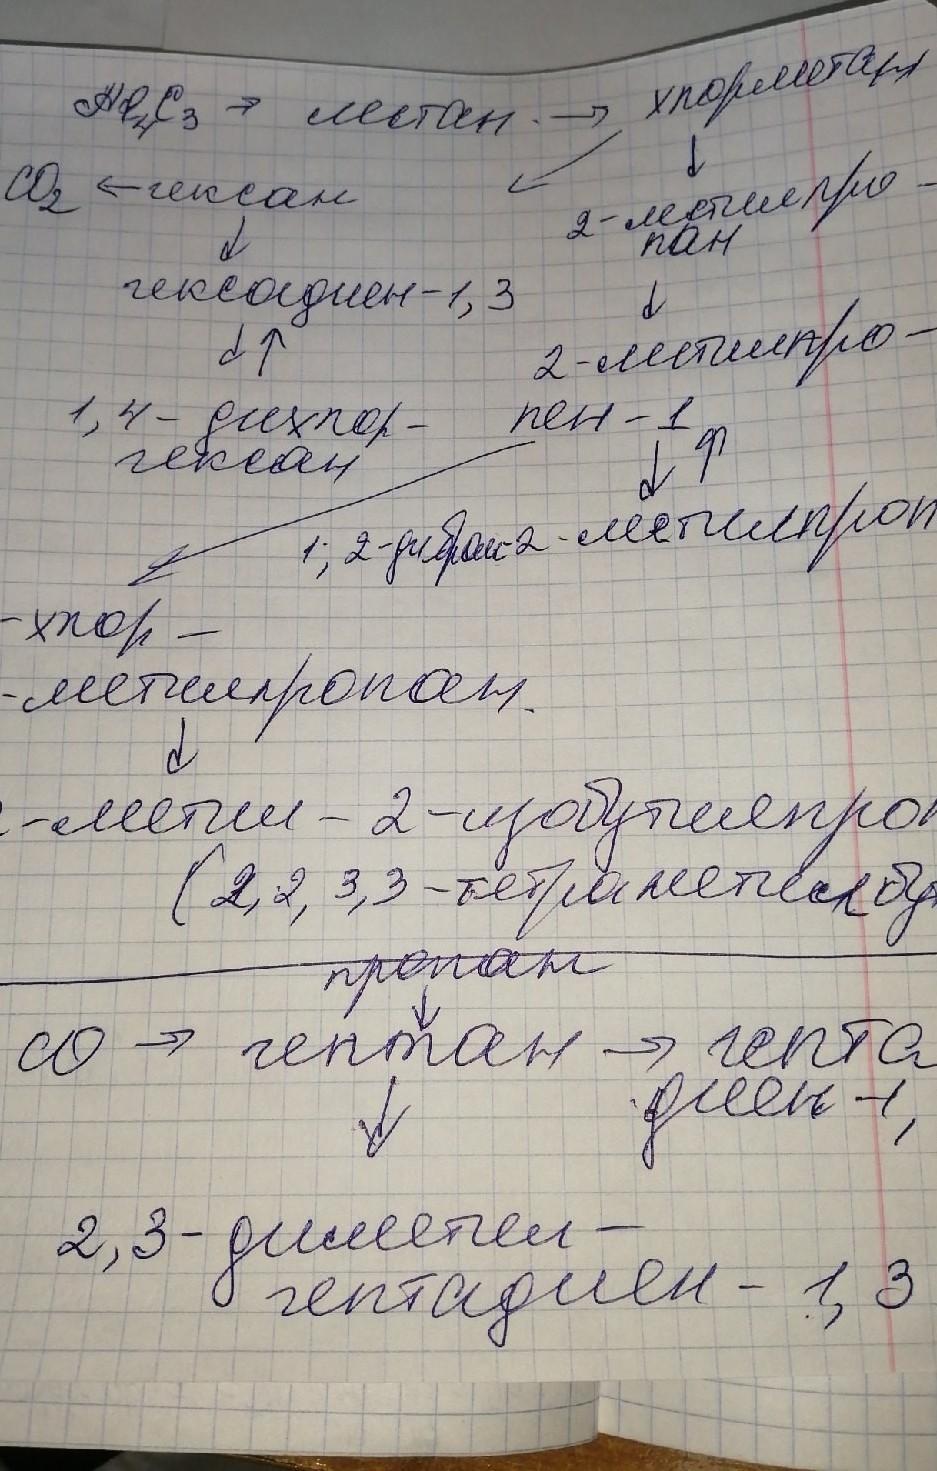 Al₄C₃ → метан → хлорметан
CO₂ ← гексан
2-метилпро-
пан
гексадиен-1,3
2-метилпро-
1,4-дихлор-
пен-1
гексан
1,2-дибром-2-метилпроп
-хлор-
-метилпропан
-метил-2-изобутилпроп
(2,2,3,3-тетраметилбу
пропан
CO → гептан → гепта
диен-1,
2,3-диметил-
гептадиен-1,3